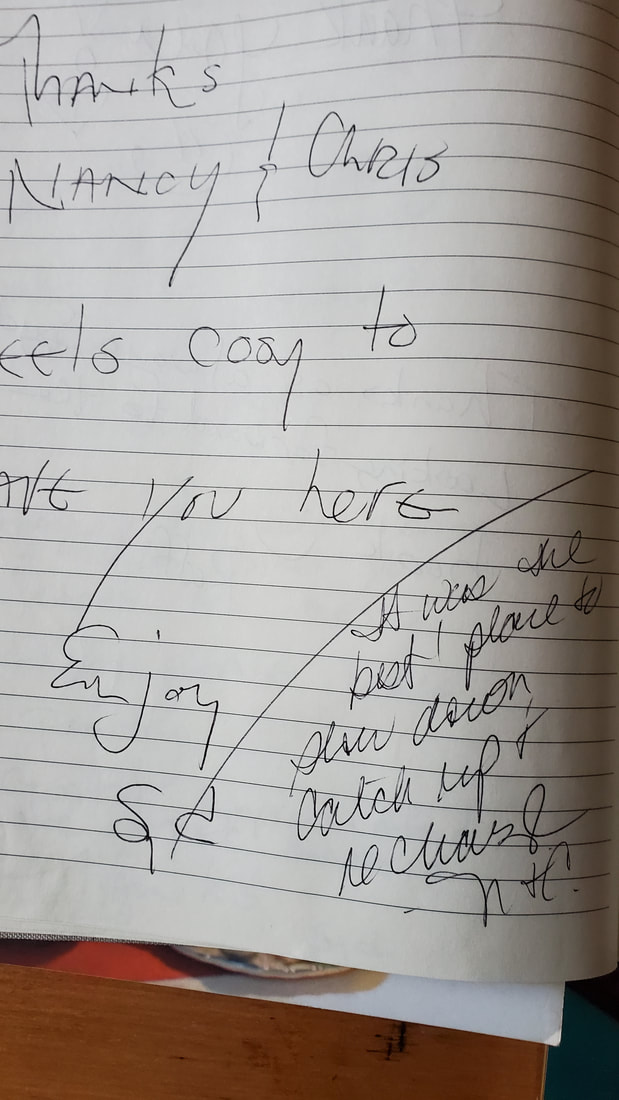 Thanks
NANCY & CHRIS
eels cosy to
ave you here
Enjoy
It was the
best place to
slow down,
catch up &
recharge